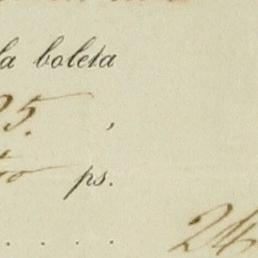 la boleta
25. ,
ps.
. . . . 24